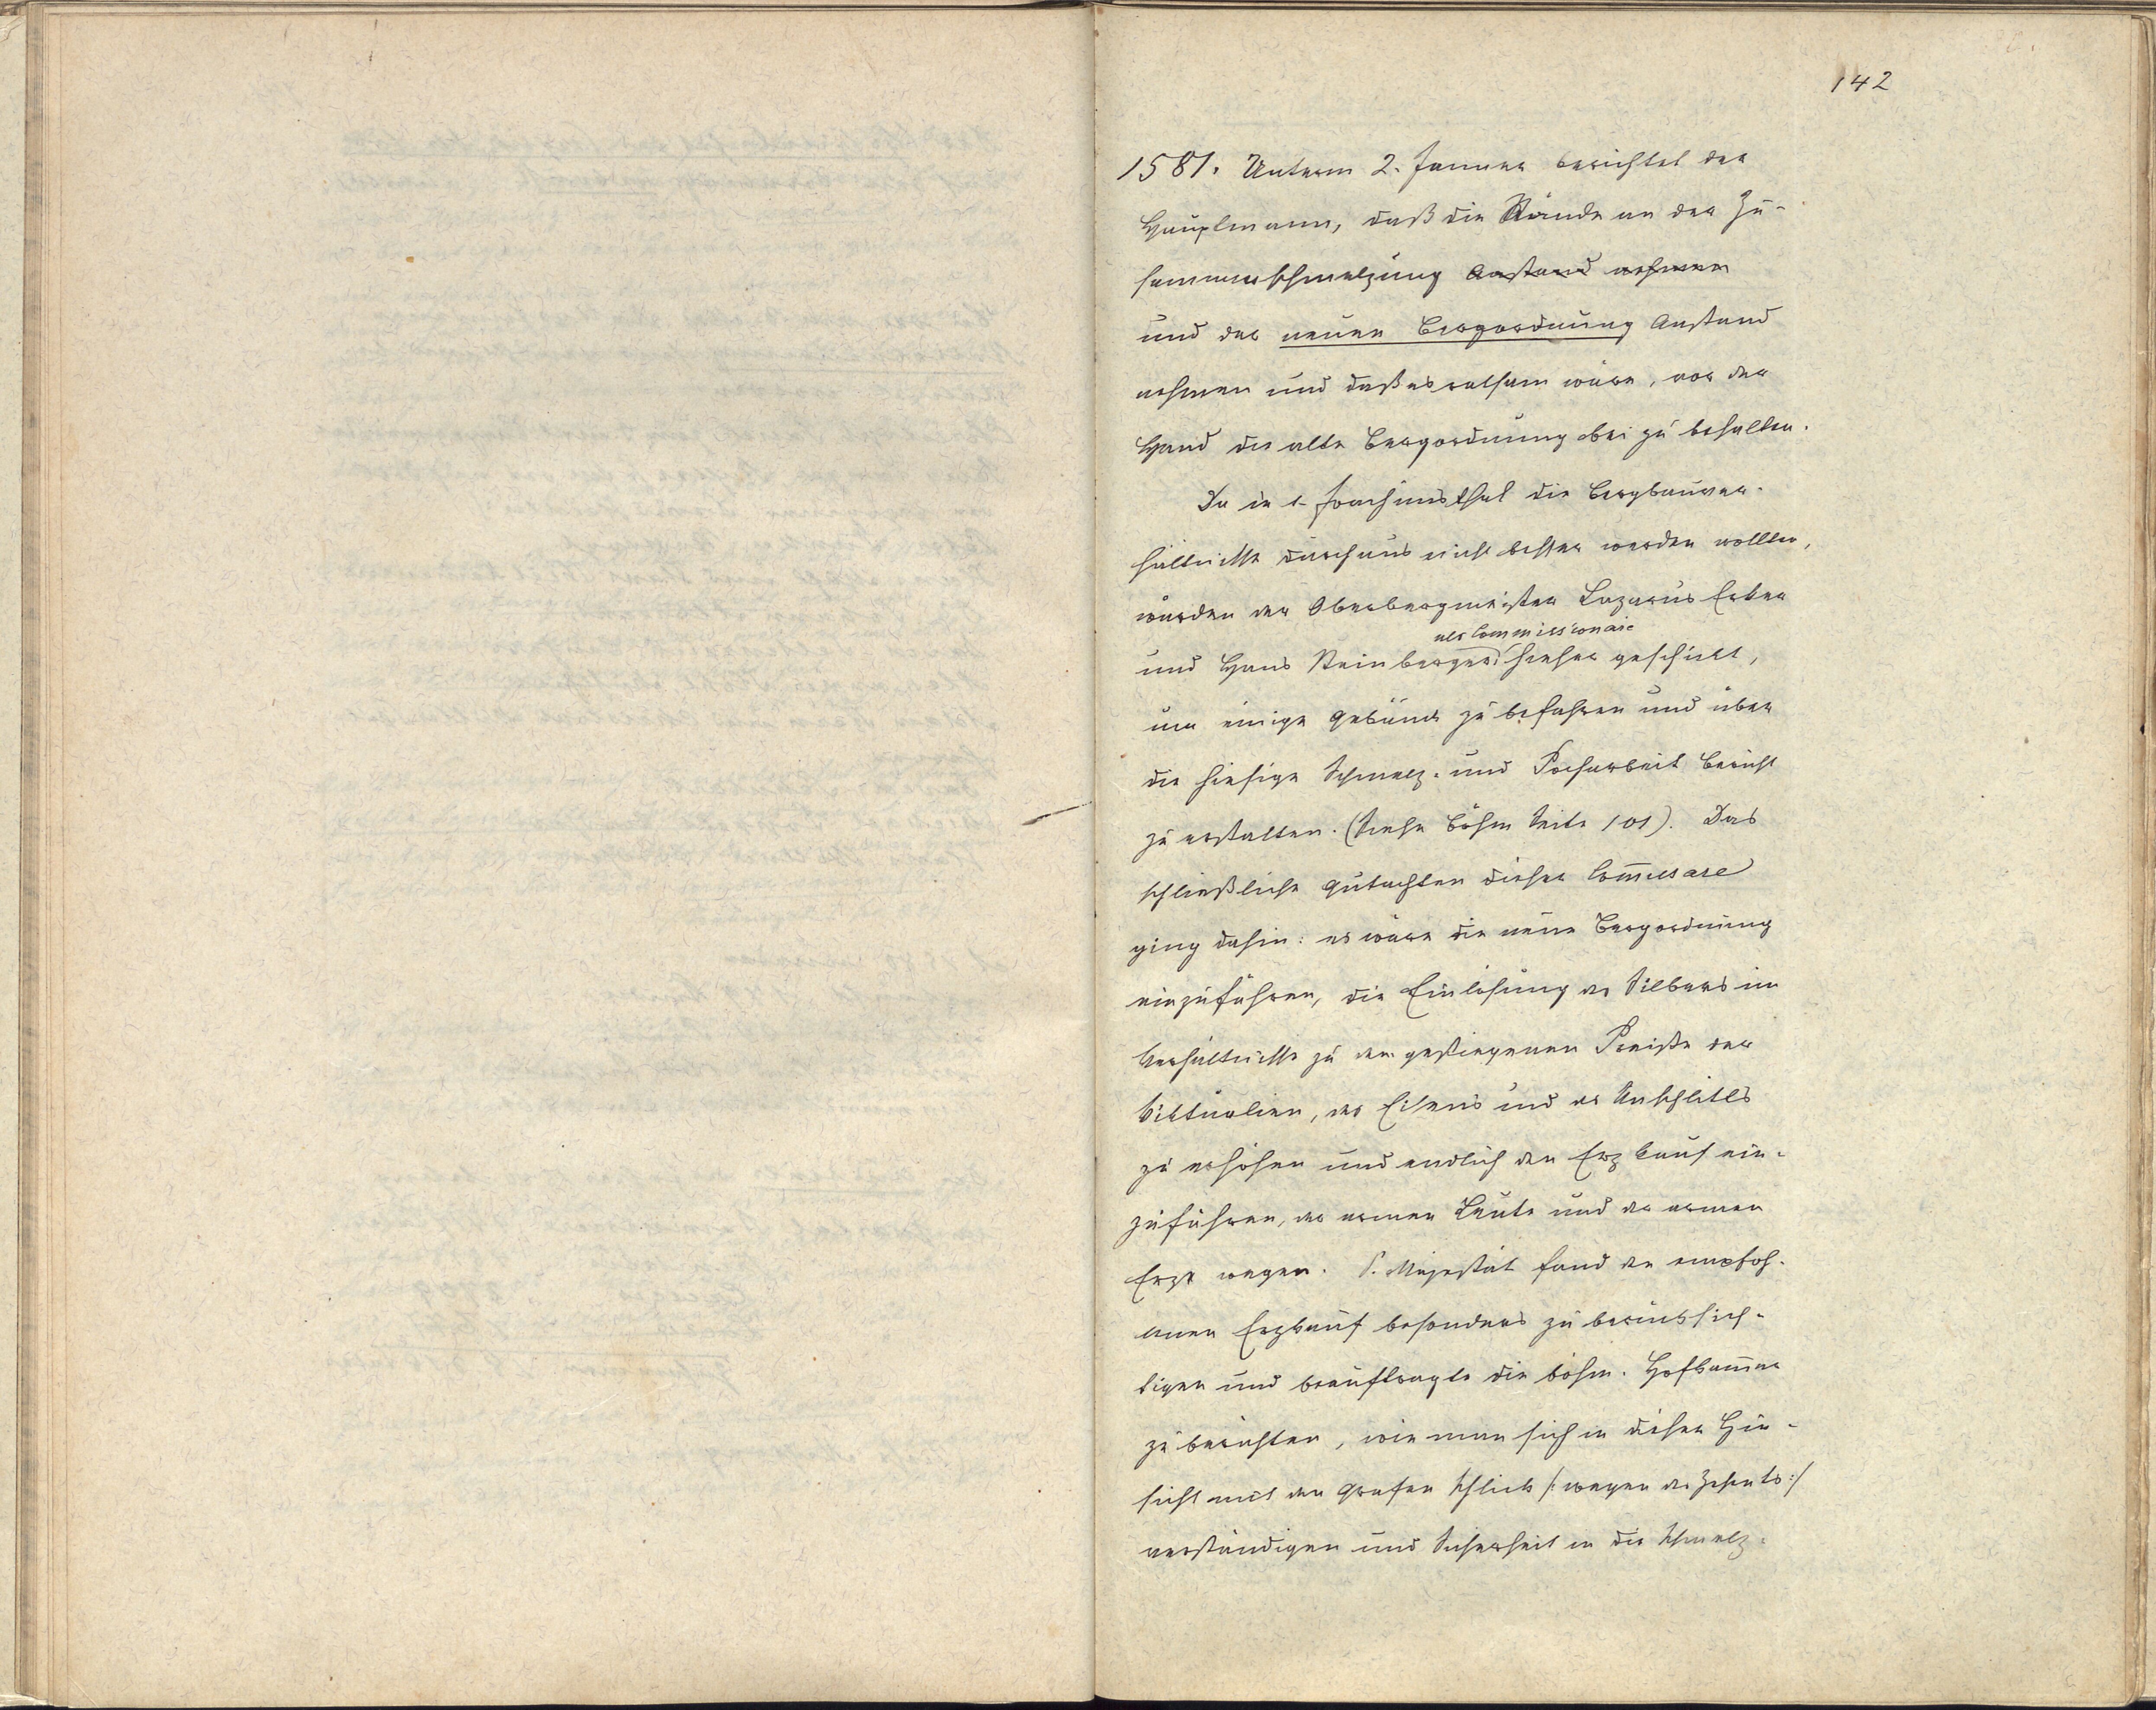 142
1581. Unterm 2. Januar berichtet der
Hauptmann, daß die Stände an der Zu-
sammenschmelzung Anstand nehmen
und der neuen Bergordnung Anstand
nehmen und daß es rathsam wäre, vor der
Hand die alte Bergordnung bei zu behalten.
Da in St. Joachimsthal die Bergbauver-
hältnisse durchaus nicht besser werden wollten,
wurden der Oberbergmeister Lazarus Erker
als Commissionaire
und Hans Steinberger hieher geschickt,
um einige Gebäude zu befahren und über
die hiesige Schmelz- und Pocharbeit Bericht
zu erstatten. (Siehe Böhm Seite 101). Das
schließliche Gutachten dieser Commissare
ging dahin: es wäre die neue Bergordnung
einzuführen, die Einlösung des Silbers im
Verhältnisse zu den gestiegenen Preiße der
Viktualien, des Eisens und des Unschlitts
zu erhöhen und endlich den Erzkauf ein-
zuführen, der armen Leute und der armen
Erze wegen. S. Majestät fand den empfoh-
lenen Erzkauf besonders zu berücksich-
tigen und beauftragte die böhm. Hofkammer
zu berichten, wie man sich in dieser Hin-
sicht mit den Grafen Schlick /: wegen des Zehents :/
verständigen und Sicherheit in die Schmelz-